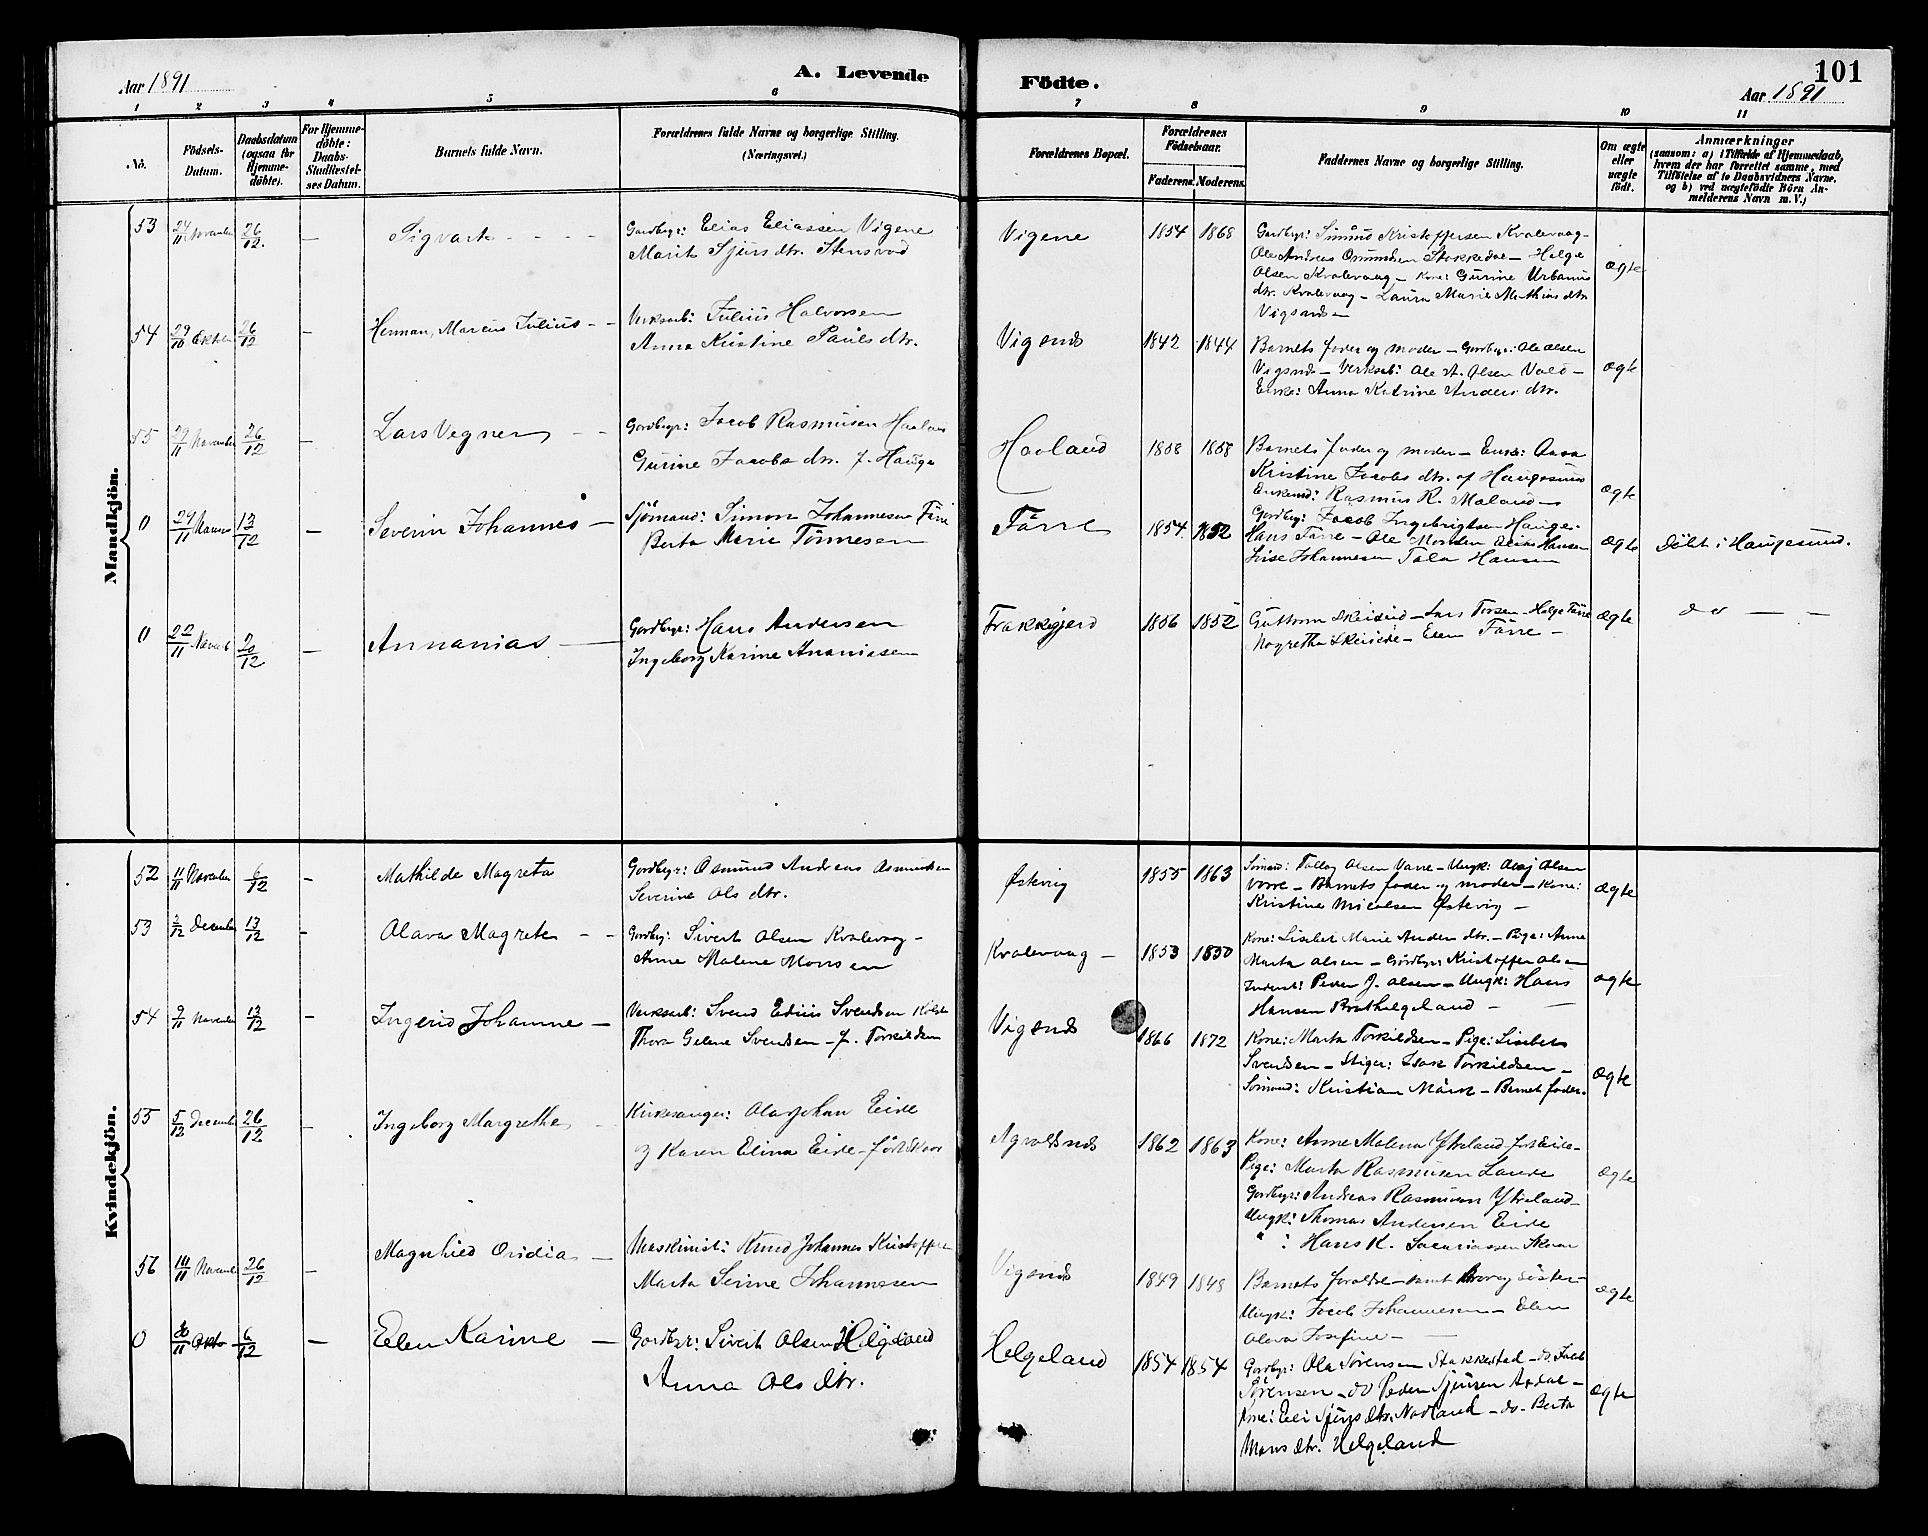 Aar 1891
A. Levende
Födte.
101
Aar 1891
1 2 3 4 5 6 7 8 9 10 11
No.
Födsels-Datum.
Daabsdatum (ogsaa for Hjemme-döbte).
For Hjemme-döbte: Daabs-Stadfæstel-ses Datum.
Barnets fulde Navn.
Forældrenes fulde Navne og borgerlige Stilling. (Næringsvei.)
Forældrenes Bopæl.
Forældrenes Födselsaar.
Faderens. Moderens.
Faddernes Navne og borgerlige Stilling.
Om ægte eller uægte födt.
Anmærkninger
(saasom: a) i Tilfælde af Hjemmedaab,
hvem der har forrettet samme, med
Tilföielse af to Daabsvidners Navne,
og b) ved uægtefödte Börn An-
melderens Navn m. V.)
Mandkjön.
53 24/11 November 26/12. — Sigvart - - - Gardbgr: Elias Eliassen Vigene
Marit Sjursdtr. Stensvod
Vigene 1854 1868 Gardbgr: Simund Kristoffersen Kvalevaag-
Ole Andreas Osmundsen Stokkedal — Helge
Olsen Kvalevaag — Kone: Gurine Urbanus
dtr. Kvalevaag — Laura Marie Mathias dtr
Vigsnds
ægte
54 29/10 Oktober 26/12 — Herman, Marcus Julius - - Verksarb: Julius Halvorsen
Anna Kristine Pauls dtr.
Vigsnds 1842 1844 Barnets fader og moder — Gardbgr: Ole Olsen
Vigsnds — Verksarb: Ole A. Olsen Vold —
Enke: Anna Katrine Anders dtr.
ægte
55 29/11 November 26/12 — Lars Vegner - - Gardbgr: Jacob Rasmusen Havland
Gurine Jacobs dtr. f. Hauge
Havland 1858 1858 Barnets fader og moder — Enke: Aasa
Kristine Jacobs dtr. af Haugesund
Enkemd: Rasmus R. Maland
ægte
0 29/11 13/12 — Severin Johannes — Sjömand: Simon Johannesen Färre
Berta Marie Tönnesen
Färre 1854 1852 Gardbgr: Jacob Ingebrigtsen Hauge-
Hans Färre — Ole Monsen Hansen
Lise Johannesen Hansen
ægte Döbt i Haugesund.
0 22/11 Novemb 20/12 — Annanias — Gardbgr: Hans Andersen
Ingeborg Karine Ananiasen
Frakkgjerd 1856 1852 Guttorm Skeiseid — Lars Torsen — Helge Färre
Magretha Skeisede — Elen Färre —
ægte do — —
Kvindekjön.
52 11/11 November 6/12 — Mathilde Magreta Gardbgr: Osmund Andreas Asmundsen
Severine Ols dtr.
Østevig 1855 1863 Sömand: Tolleg Olsen Varre — Ungk: Olsen
Vorre — Barnets fader og moder — Kone:
Kristine Micalsen Østevig —
ægte
53 2/12 December 13/12 - Olava Magrete - - Gardbg: Sivert Olsen Kvalevaag —
Anne Malene Monsen
Kvalevaag — 1853 1850 Kone: Lisebet Marie Anders dtr. — Pige: Anne
Marta Olsen — Gårdbgr: Kristoffer Olsen
Inderst: Peder J. Olsen — Ungk: Hans
Hansen Brathelgeland —
ægte
54 9/11 November 13/12 — Ingerid Johanne — Verksarb: Svend Edius Svendsen
Thora Gelene Svendsen — f. Torkildsen
Vigsnds 1866 1872 Kone: Marta Torkildsen — Pige: Lisebet
Svendsen — Stiger: Isak Torkildsen —
Sömand: Kristian — Barnet fader.
ægte
55 5/12 December 26/12 — Ingeborg Margrethe Kirkesanger: Ola Johan Eide
og Karen Elina Eide — född Skaar
Agvaldsnds 1862 1863 Kone: Anne Malena Ytreland född Eide —
Pige: Marta Rasmusen Lande
Gardbgr: Andreas Rasmusen Ytreland —
Ungk: Thomas Andersen Eide
" : Hans K. Sacariassen Skaar
ægte
56 10/11 November 26/12 — Magnhied Ovidia — Maskinist: Knud Johannes Kristoffersen
Marta Serine Johannessen
Vigsnds 1849 1848 Barnets foreldre — samt Bror og Söster —
Ungk: Jacob Johannesen — Elen
Olava Josefine —
ægte
0 30/11 6/12 — Elen Karine — Gardbgr: Sivert Olsen Helgeland
Anna Ols dtr.
Helgeland 1854 1854 Gardbgr: Ola Sörensen Stakkestad — do. Jacob
Sörensen — do Peder Sjursen Årdal —
Kone: Eli Sjurs dtr. Nadland — do. Berta
Mons dtr. Helgeland
ægte